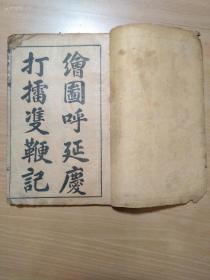 繪圖呼延慶
打擂雙鞭記